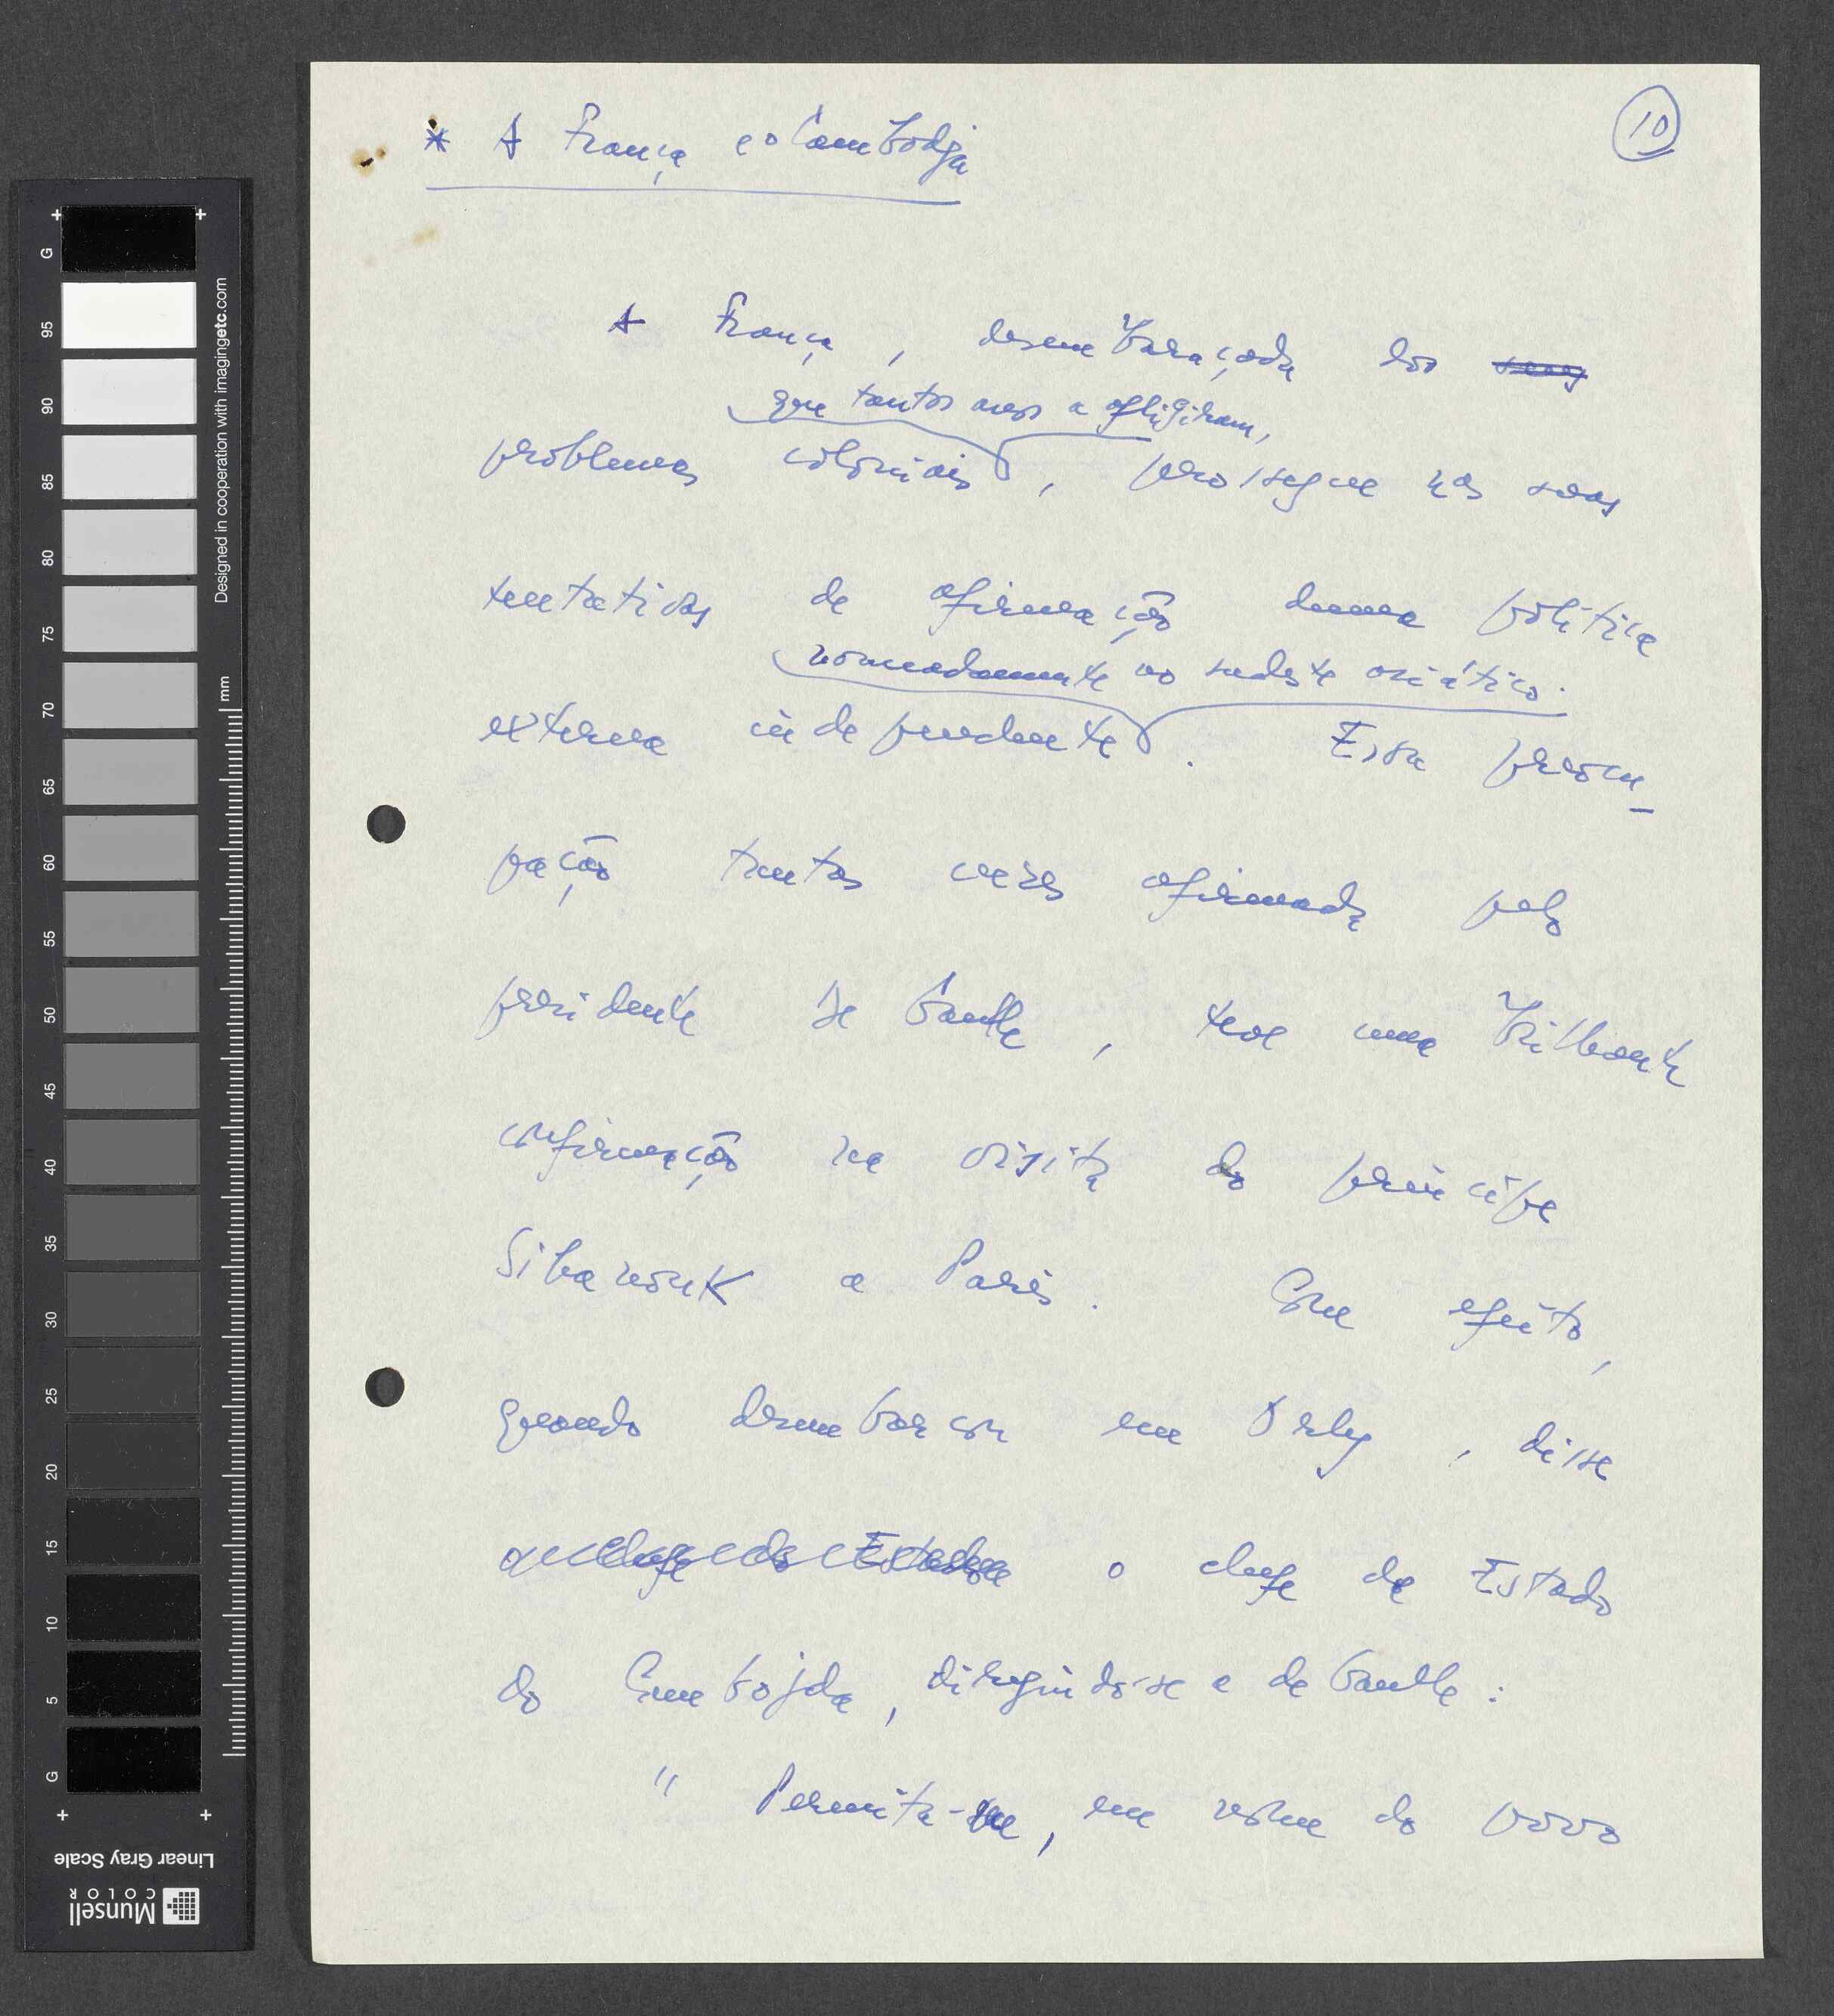 10
* A França e o Cambodja
A França, desembaraçada dos
que tantos anos a afligiram,
problemas coloniais, prossegue nas suas
tentativas de afirmação duma política
nomeadamente no sudeste asiático.
externa independente. Essa preocu-
pação tantas vezes afirmada pelo
presidente De Gaulle, teve uma brilhante
confirmação na visita do príncipe
Sihanouk a Paris. Com efeito,
quando desembarcou em Orly, disse
o chefe de Estado
do Cambojda, dirigindo-se a de Gaulle:
" Permita-me, em nome do povo
G
95
90
85
80
75
70
65
60
55
50
45
40
35
30
25
20
15
10
5
G
mm
Designed in cooperation with imagingetc.com
Linear Gray Scale
Munsell
COLOR